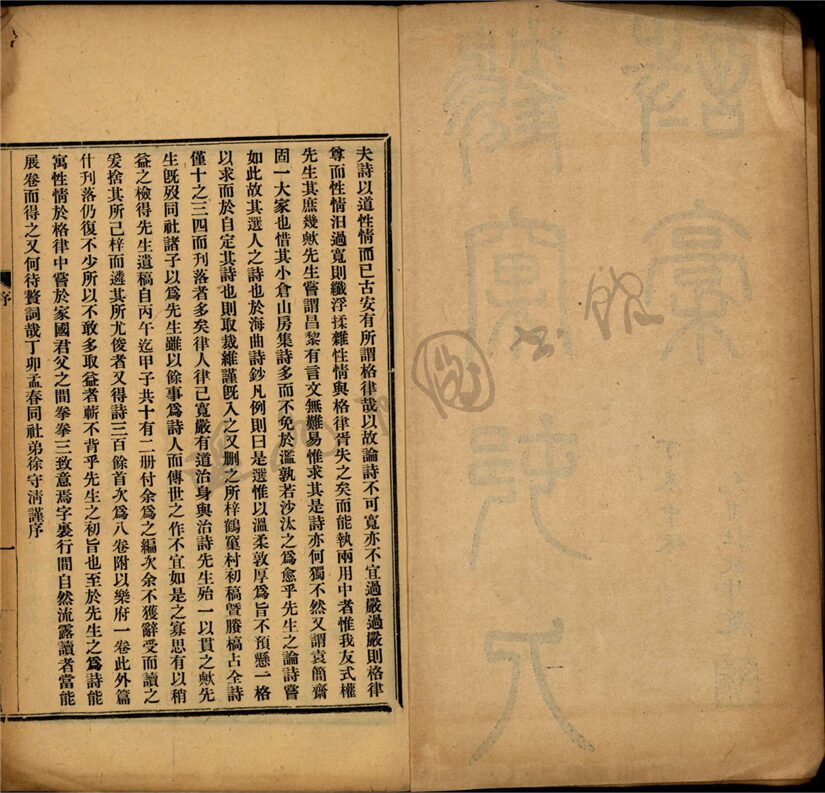 夫詩以道性情而已古安有所謂格律哉以故論詩不可寬亦不宜過嚴過嚴則格律
尊而性情汨過寬則纖浮揉雜性情與格律胥失之矣而能執兩用中者惟我友式權
先生其庶幾歟先生嘗謂昌黎有言文無難易惟求其是詩亦何獨不然又謂袁簡齋
固一大家也惜其小倉山房集詩多而不免於濫孰若沙汰之爲愈乎先生之論詩嘗
如此故其選人之詩也於海曲詩鈔凡例則曰是選惟以溫柔敦厚爲旨不預懸一格
以求而於自定其詩也則取裁維謹既入之又删之所梓鶴窠村初稿曁賸槁占全詩
僅十之三四而刊落者多矣律人律己寬嚴有道治身與治詩先生殆一以貫之歟先
生既歿同社諸子以爲先生雖以餘事爲詩人而傳世之作不宜如是之寡思有以稍
益之檢得先生遺稿自丙午迄甲子共十有二册付余爲之編次余不獲辭受而讀之
爰捨其所已梓而遴其所尤俊者又得詩三百餘首次爲八卷附以樂府一卷此外篇
什刊落仍復不少所以不敢多取益者蘄不背乎先生之初旨也至於先生之爲詩能
寓性情於格律中嘗於家國君父之間拳拳三致意焉字裏行間自然流露讀者當能
展卷而得之又何待贅詞哉丁卯孟春同社弟徐守淸謹序
序
一